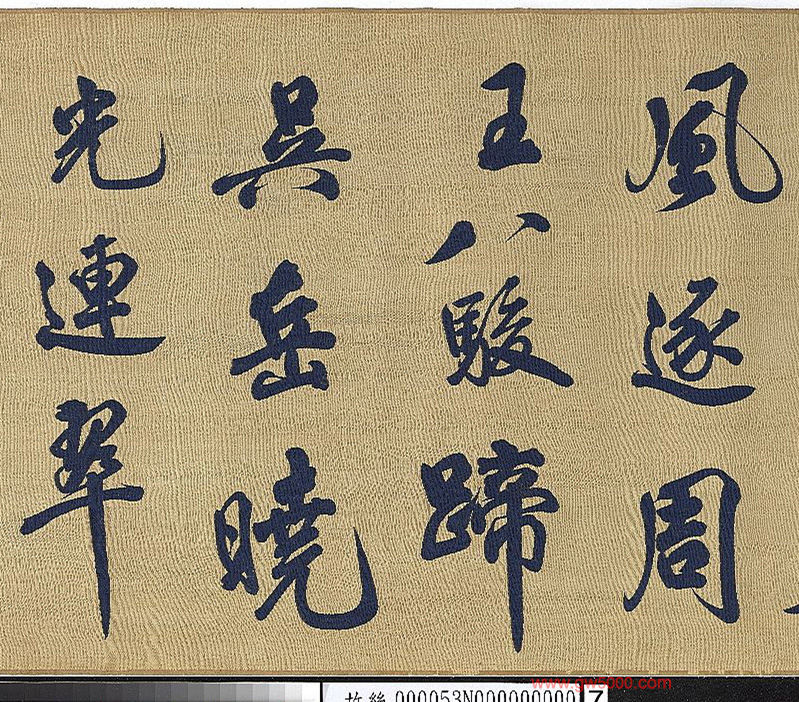 風逐周
王八駿蹄
吳岳曉
光連翠
故絲000053N000000000
www.gw5000.com